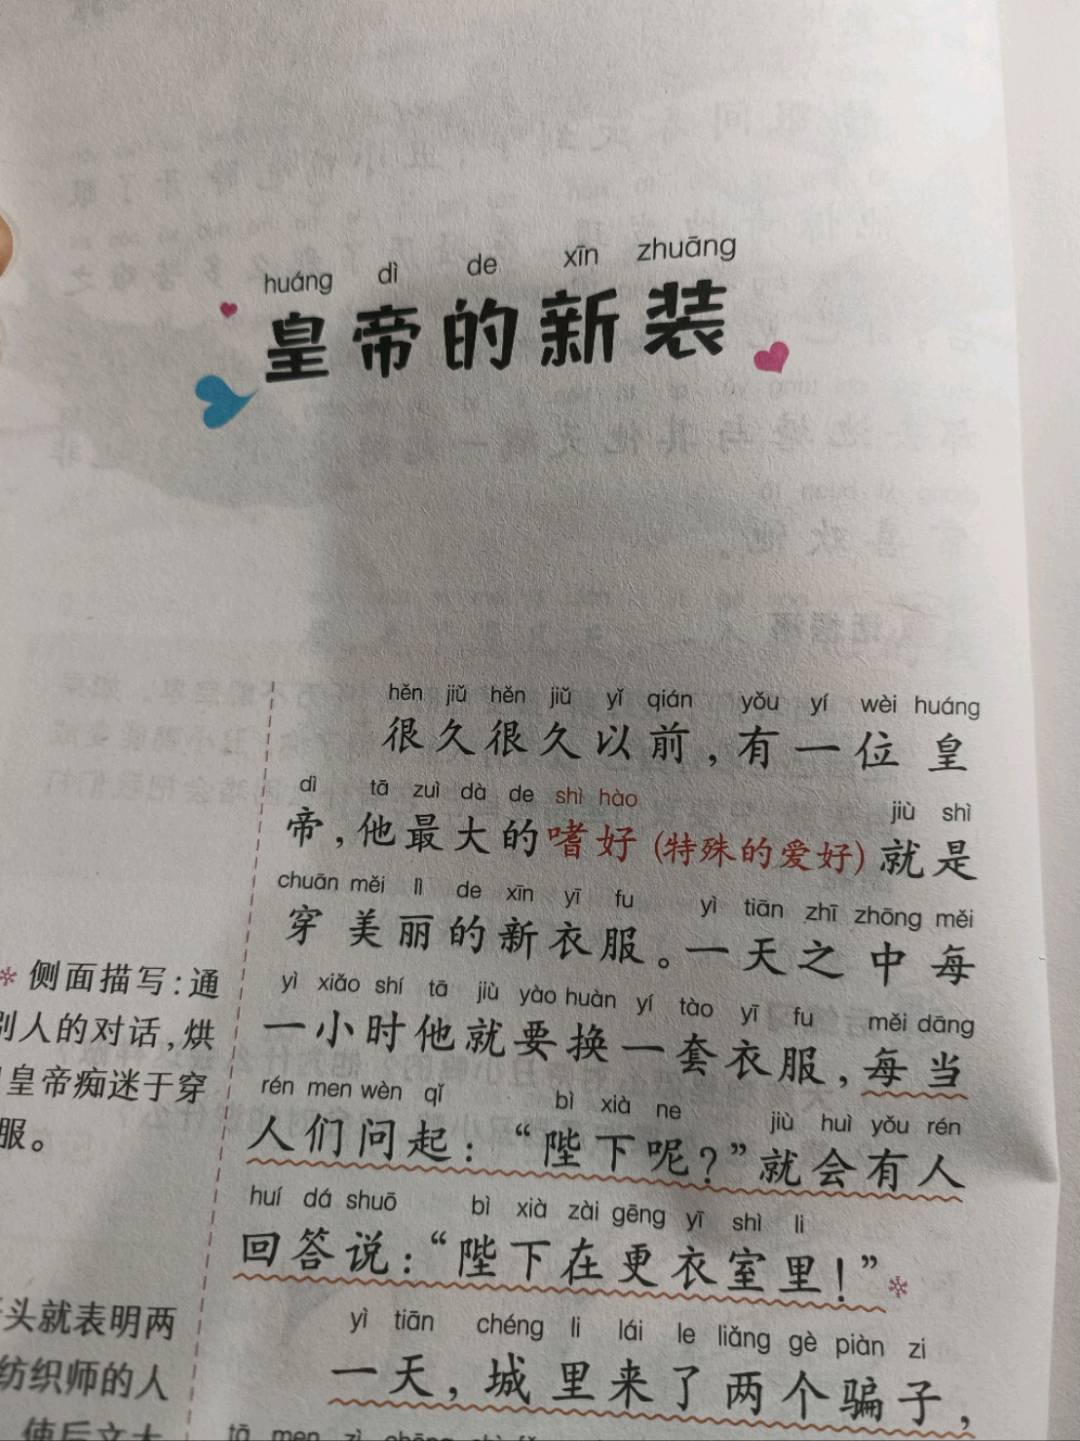 huáng dì de xīn zhuāng
皇帝的新装
hěn jiǔ hěn jiǔ yǐ qián yǒu yí wèi huáng
很久很久以前,有一位皇
dì tā zuì dà de shì hào jiù shì
帝,他最大的嗜好(特殊的爱好)就是
chuān měi lì de xīn yī fu yì tiān zhī zhōng měi
穿美丽的新衣服。一天之中每
yì xiǎo shí tā jiù yào huàn yí tào yī fu měi dāng
一小时他就要换一套衣服,每当
rén men wèn qǐ bì xià ne jiù huì yǒu rén
人们问起:“陛下呢?”就会有人
huí dá shuō bì xià zài gēng yī shì li
回答说:“陛下在更衣室里!”*
yì tiān chéng li lái le liǎng gè piàn zi
一天,城里来了两个骗子,
*侧面描写:通
别人的对话,烘
皇帝痴迷于穿
服。
头就表明两
纺织师的人